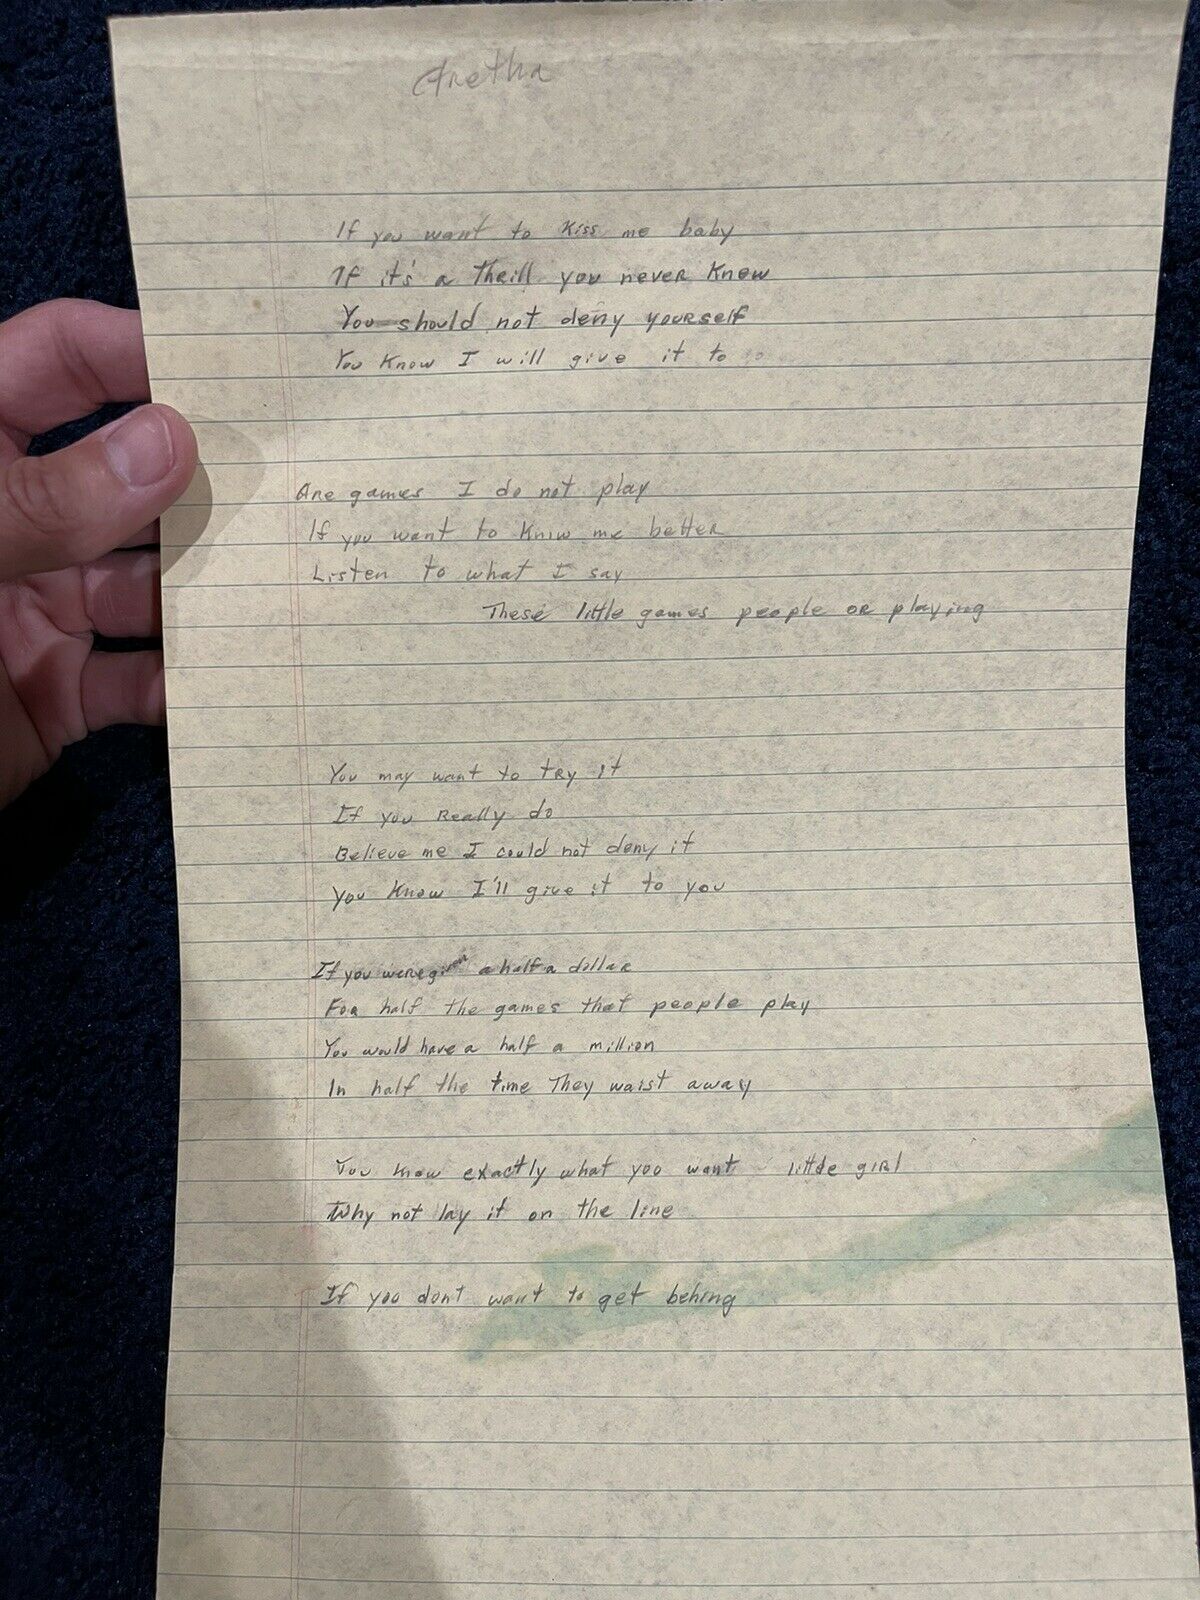 Aretha
If you want to Kiss me baby
If it's a thrill you never Knew
You should not deny yourself
You Know I will give it to
Are games I do not play
If you want to Know me better
Listen to what I say
These little games people or playing
You may want to try it
If you Really do
Believe me I could not deny it
You Know I'll give it to you
If you were given a half a dollar
For half the games that people play
You would have a half a million
In half the time They waist away
You know exactly what yoo want little girl
Why not lay it on the line
If yoo dont want to get behing